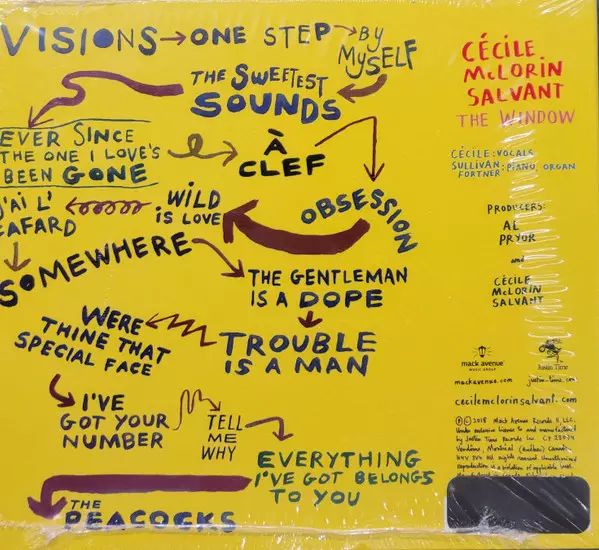 VISIONS → ONE STEP → BY
MYSELF
THE SWEETEST
SOUNDS
EVER SINCE
THE ONE I LOVE'S
BEEN GONE
À
CLEF
OBSESSION
WILD
IS LOVE
J'AI L'
CAFARD
SOMEWHERE
THE GENTLEMAN
IS A DOPE
TROUBLE
IS A MAN
WERE
THINE THAT
SPECIAL FACE
I'VE
GOT YOUR
NUMBER
TELL
ME
WHY
EVERYTHING
I'VE GOT BELONGS
TO YOU
THE
PEACOCKS
CÉCILE
McLORIN
SALVANT
THE WINDOW
CÉCILE: VOCALS
SULLIVAN
FORTNER: PIANO, ORGAN
PRODUCERS:
AL
PRYOR
and
CÉCILE
McLORIN
SALVANT
mack avenue
MUSIC GROUP
Justin Time
mackavenue.com justin-time.com
cecilemclorinsalvant.com
℗ © 2018 Mack Avenue Records II, LLC.
Under exclusive license to and manufactured
by Justin Time Records Inc.
Montréal (Québec) Canada,
All rights reserved. Unauthorized
reproduction is a violation of applicable laws.